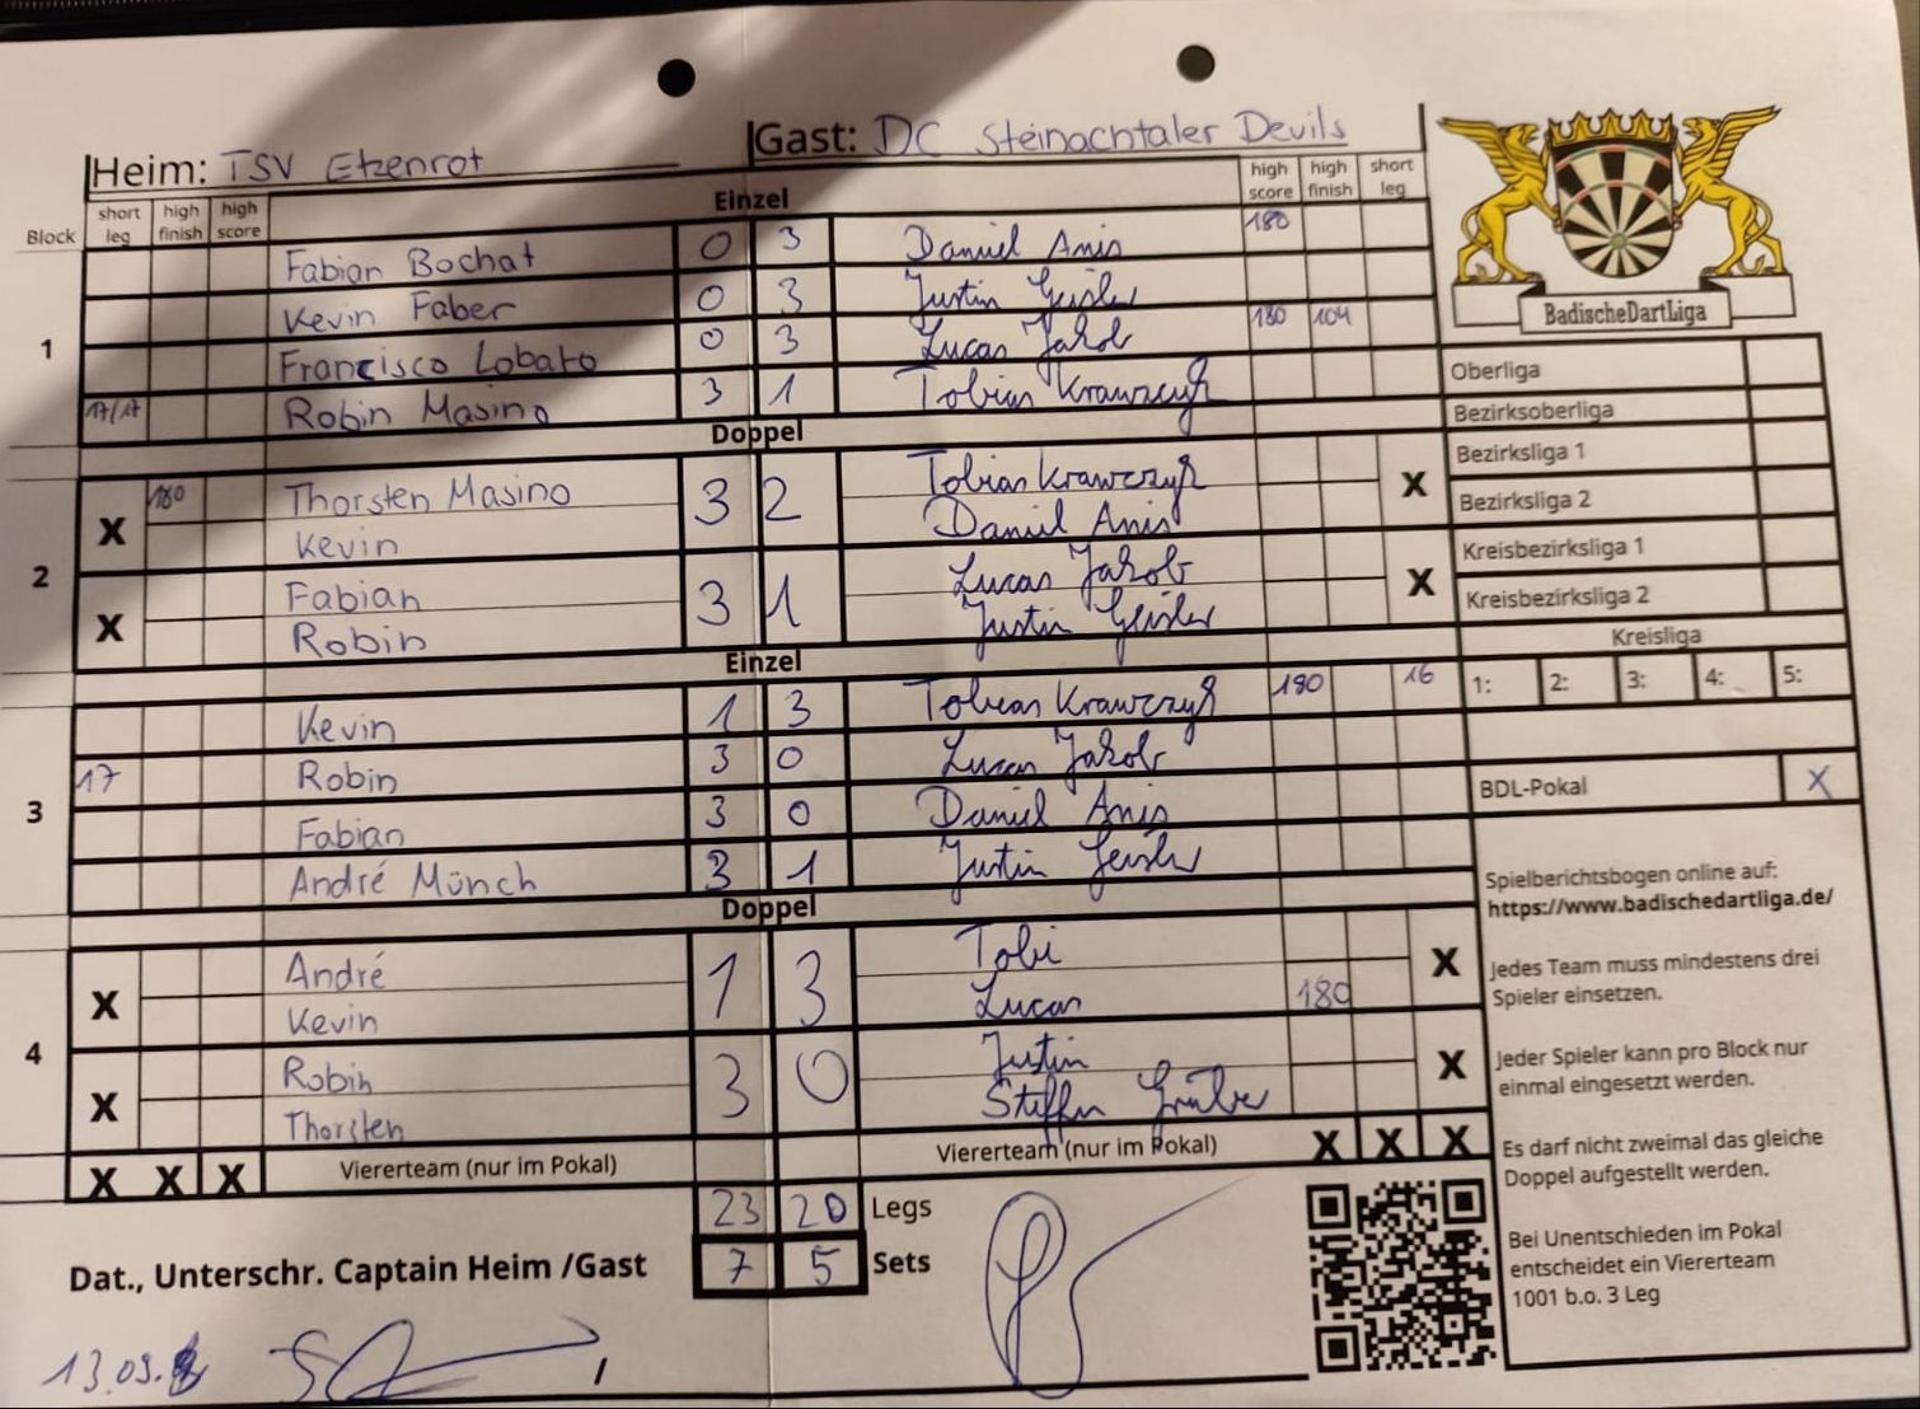 Heim: TSV Etzenrot Gast: DC Steinachtaler Devils
Block short leg high finish high score Einzel high score high finish short leg
Fabian Bochat 0 3 Daniel Anis 180
Kevin Faber 0 3 Justin Geisler
1 Francisco Lobato 0 3 Lucas Jakob 180 104
17/17 Robin Masino 3 1 Tobias Krawczyk
Doppel
X 180 Thorsten Masino 3 2 Tobias Krawczyk X
Kevin Daniel Anis
2
X Fabian 3 1 Lucas Jakob X
Robin Justin Geisler
Einzel
Kevin 1 3 Tobias Krawczyk 180 16
17 Robin 3 0 Lucas Jakob
3 Fabian 3 0 Daniel Anis
André Münch 3 1 Justin Geisler
Doppel
X André 1 3 Tobi X
Kevin Lucas 180
4
X Robin 3 0 Justin X
Thorsten Steffen
X X X Viererteam (nur im Pokal) Viererteam (nur im Pokal) X X X
23 20 Legs
Dat., Unterschr. Captain Heim /Gast 7 5 Sets
13.09.
/
BadischeDartLiga
Oberliga
Bezirksoberliga
Bezirksliga 1
Bezirksliga 2
Kreisbezirksliga 1
Kreisbezirksliga 2
Kreisliga
1: 2: 3: 4: 5:
BDL-Pokal X
Spielberichtsbogen online auf:
https://www.badischedartliga.de/
Jedes Team muss mindestens drei
Spieler einsetzen.
Jeder Spieler kann pro Block nur
einmal eingesetzt werden.
Es darf nicht zweimal das gleiche
Doppel aufgestellt werden.
Bei Unentschieden im Pokal
entscheidet ein Viererteam
1001 b.o. 3 Leg